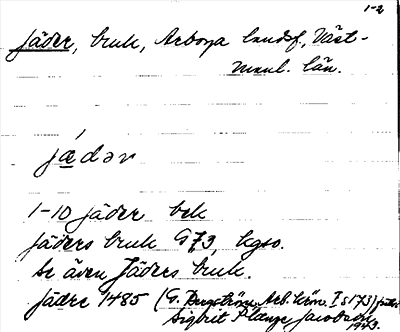 1-2
Jäder, bruk, Arboga landsf, Väst-
manl. län.
jǽdər
1-10 jäder bek
jäders bruk G73, hgso.
se även Jäders bruk.
jädre 1485 (G. Bergström, Arb. krön. I s 173)
Sigbrit Plænge Jacobson
1943.